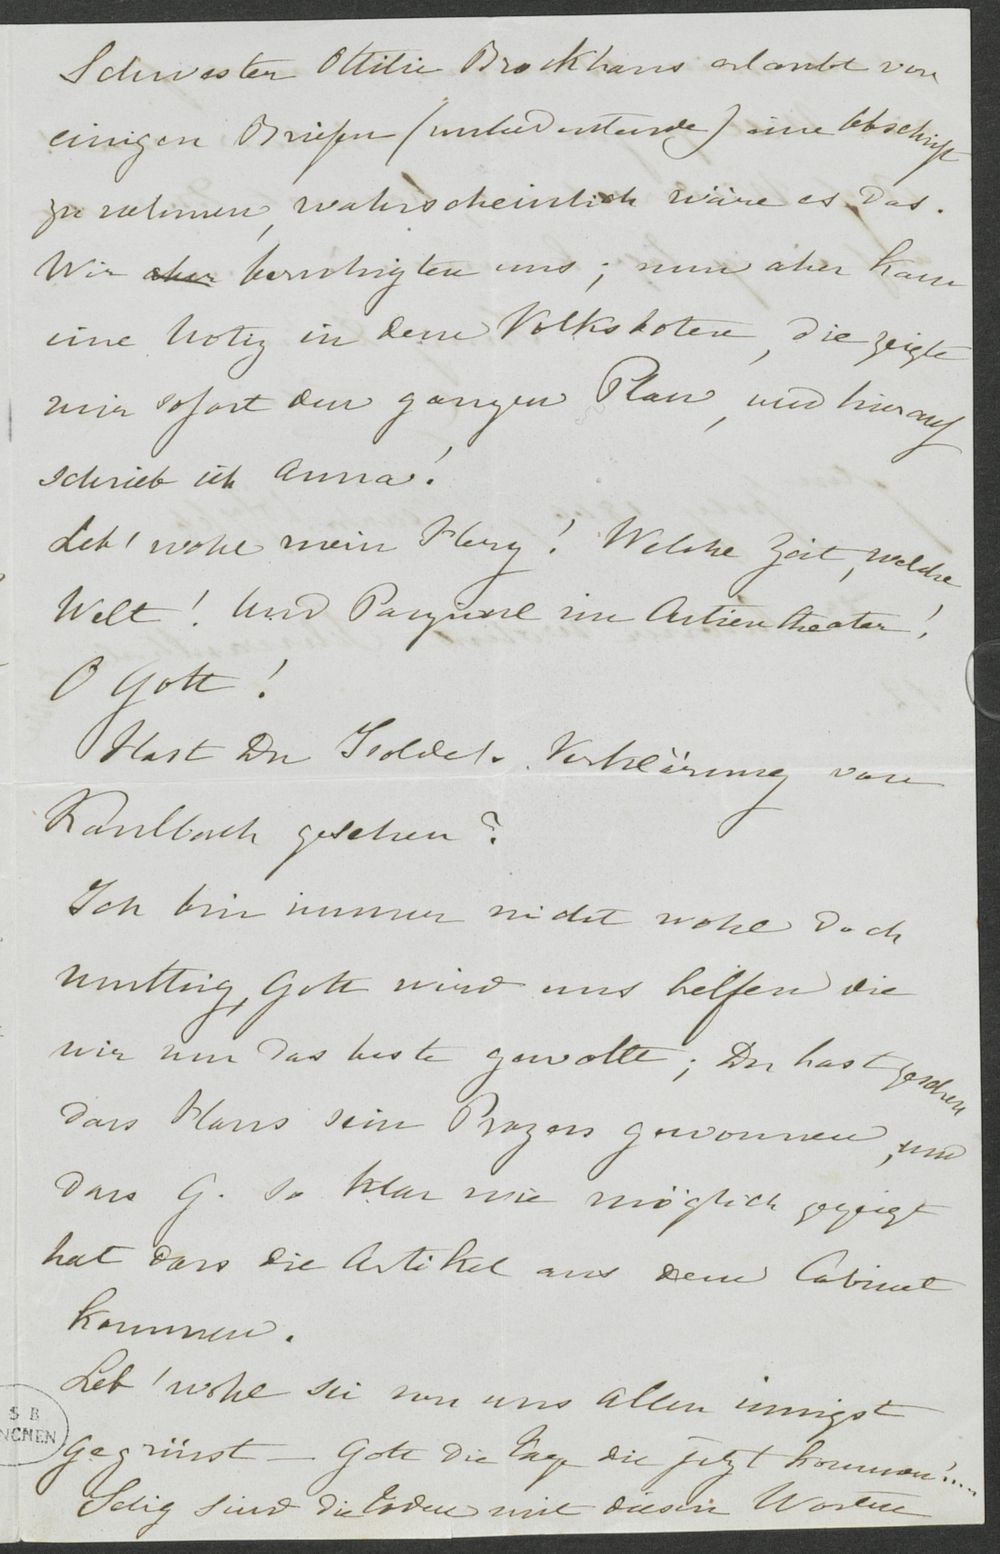 Schwester Ottilie Brockhaus erlaubt von
einigen Briefen (unbedeutende) eine Abschrift
zu nehmen, wahrscheinlich wäre es das.
Wir aber beruhigten uns; nun aber kam
eine Notiz in dem Volksboten, die zeigte
mir sofort den ganzen Plan, und hierauf
schrieb ich Anna!
Leb' wohl mein Herz! Welche Zeit, welche
Welt! Und Parzival im Actien theater!
O Gott!
Hast Du Isolde's Verklärung von
Kaulbach gesehen?
Ich bin immer nicht wohl doch
muthig, Gott wird uns helfen die
wir nur das beste gewollt; Du hast gesehen
dass Hans sein Prozess gewonnen, und
dass G. so klar wie möglich gezeigt
hat dass die Artikel aus dem Cabinet
kommen.
Leb' wohl sei von uns allen innigst
gegrüsst — Gott die Tage die jetzt kommen!....
Selig sind die mit diesen Worten
S B
NCHEN